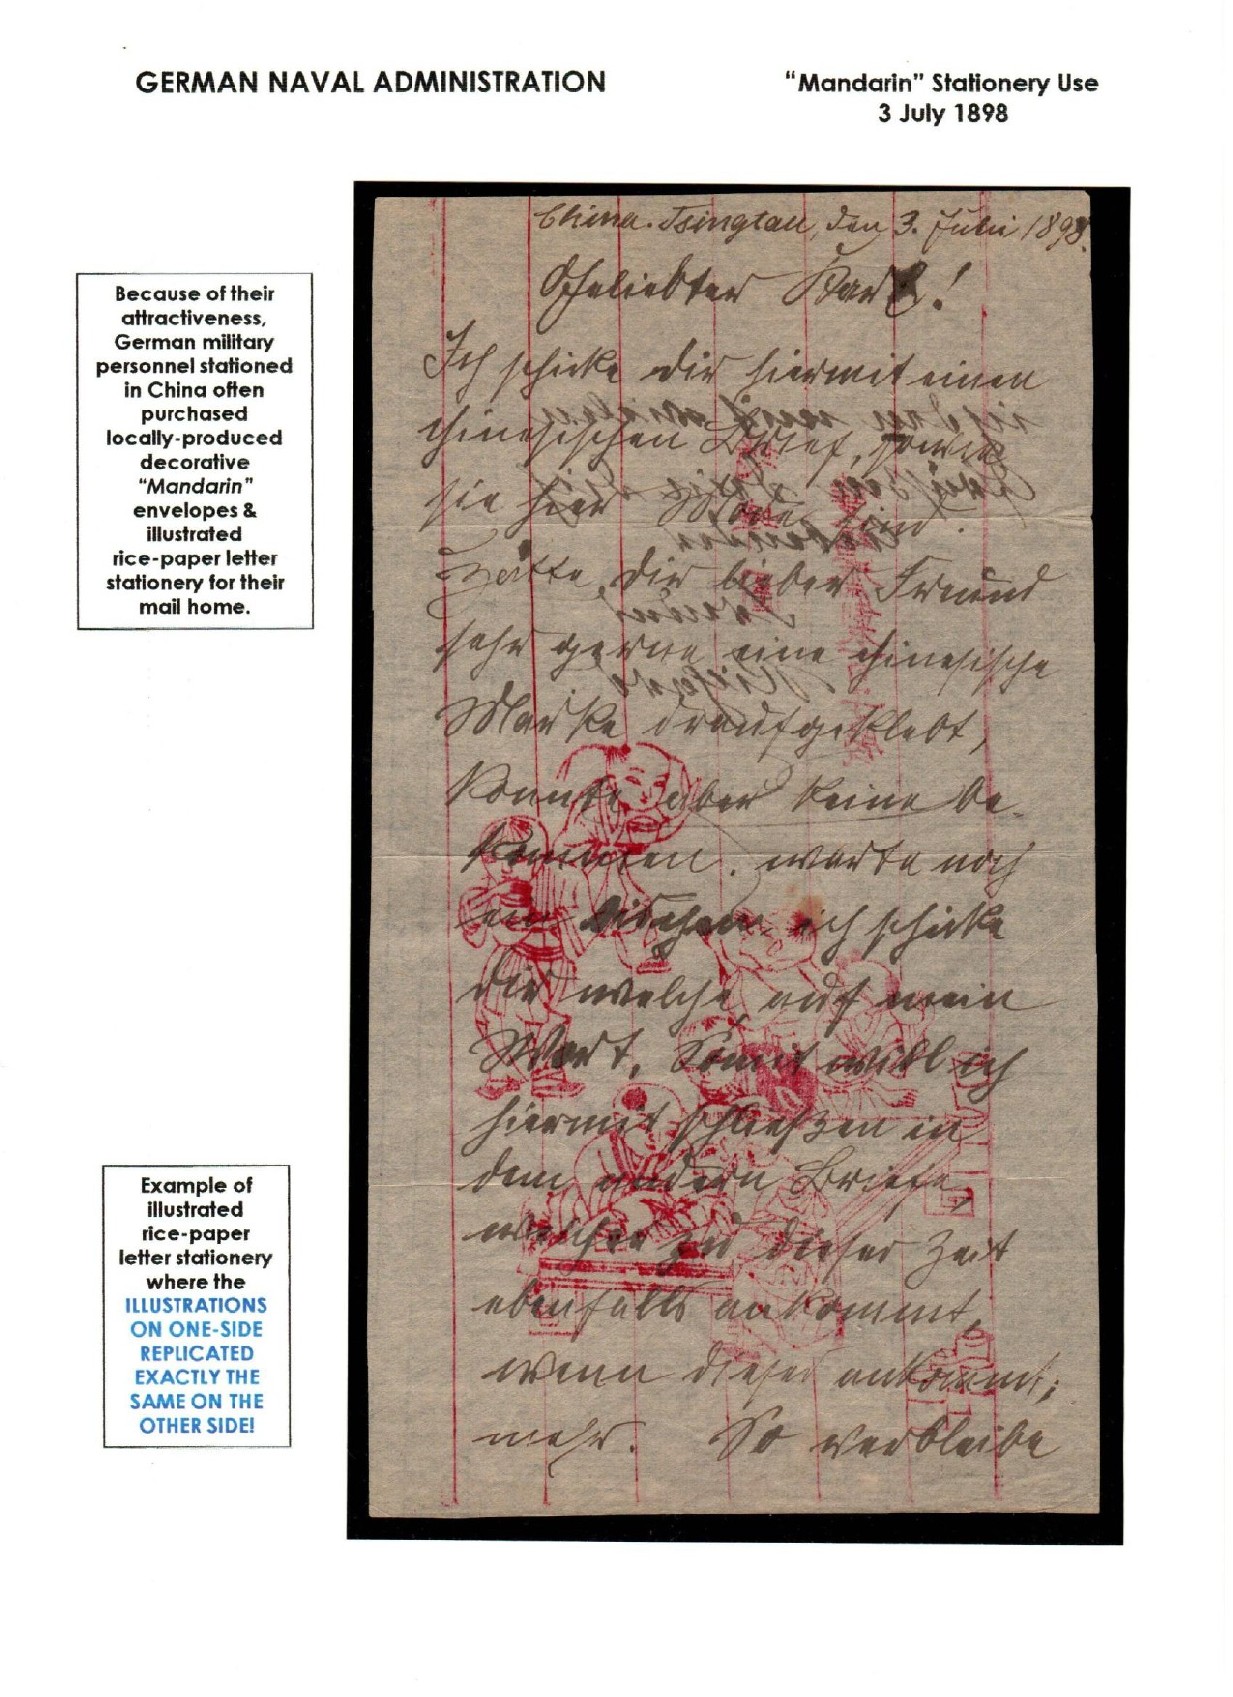 GERMAN NAVAL ADMINISTRATION
“Mandarin” Stationery Use
3 July 1898
Because of their
attractiveness,
German military
personnel stationed
in China often
purchased
locally-produced
decorative
“Mandarin”
envelopes &
illustrated
rice-paper letter
stationery for their
mail home.
Example of
illustrated
rice-paper
letter stationery
where the
ILLUSTRATIONS
ON ONE-SIDE
REPLICATED
EXACTLY THE
SAME ON THE
OTHER SIDE!
China. Tsingtau, den 3. Juli 1898.
Geliebter Karl!
Ich schicke dir hiermit einen
chinesischen Brief, sowie
sie hier Mode sind.
Hätte dir lieber Freund
sehr gerne eine chinesische
Marke draufgeklebt,
konnte aber keine be-
kommen. warte noch
ein bischen ich schicke
dir welche auf mein
Wort. Somit will ich
hiermit schließen in
dem andern Briefe,
welcher zu dieser Zeit
ebenfalls ankommt,
wenn dieser ankommt;
mehr. So verbleibe